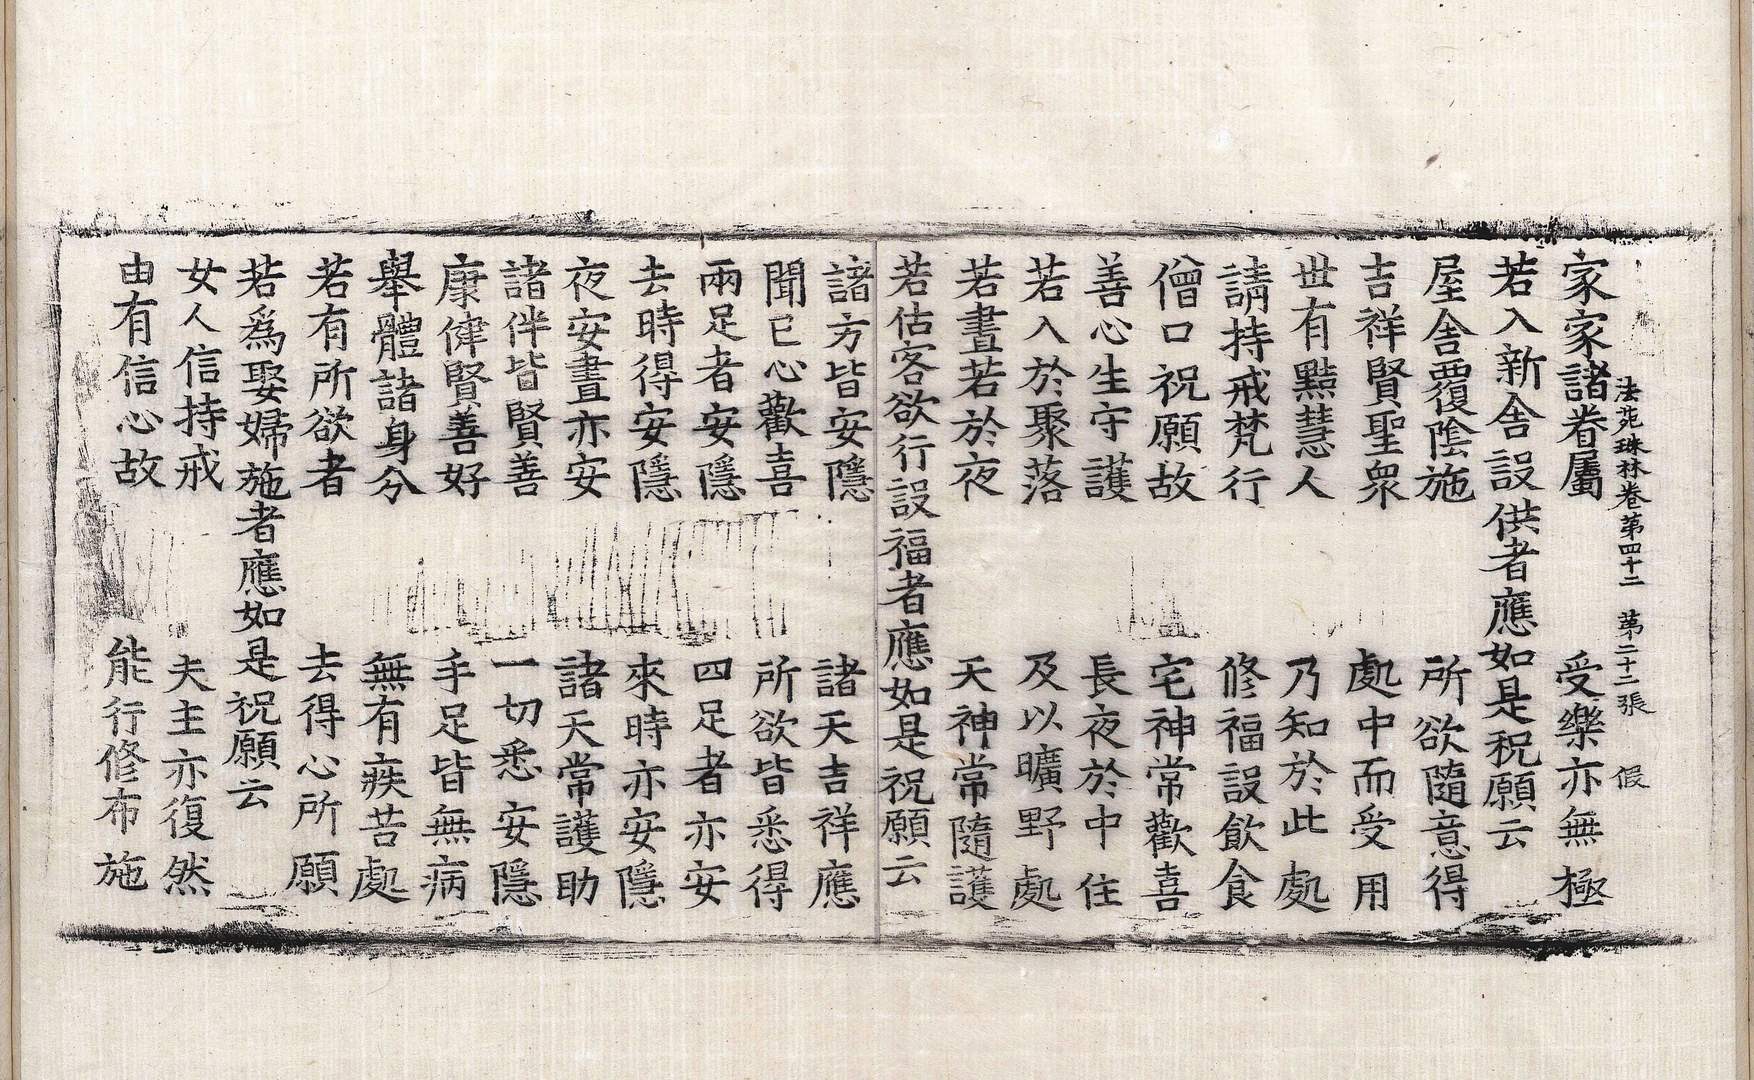 法苑珠林卷第四十二　第二十二張　假
家家諸眷屬　受樂亦無極
若入新舍設供者應如是祝願云
屋舍覆陰施　所欲隨意得
吉祥賢聖衆　處中而受用
世有黠慧人　乃知於此處
請持戒梵行　修福設飲食
僧口祝願故　宅神常歡喜
善心生守護　長夜於中住
若入於聚落　及以曠野處
若晝若於夜　天神常隨護
若估客欲行設福者應如是祝願云
諸方皆安隱　諸天吉祥應
聞已心歡喜　所欲皆悉得
兩足者安隱　四足者亦安
去時得安隱　來時亦安隱
夜安晝亦安　諸天常護助
諸伴皆賢善　一切悉安隱
康健賢善好　手足皆無病
舉體諸身分　無有疾苦處
若有所欲者　去得心所願
若爲娶婦施者應如是祝願云
女人信持戒　夫主亦復然
由有信心故　能行修布施